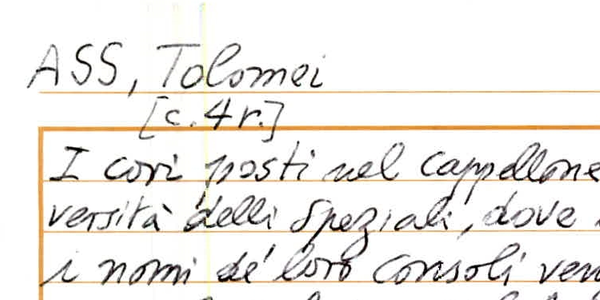 ASS, Tolomei
[c. 4 r.]
I cori posti nel cappellone
versità delli speziali, dove
i nomi de' loro consoli ven